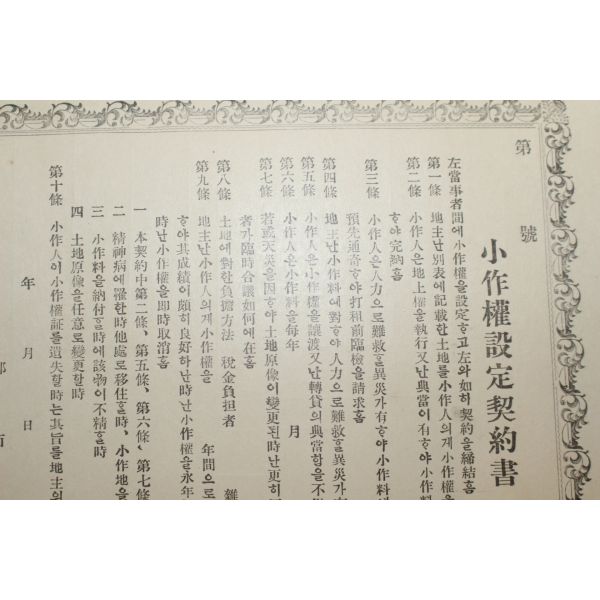 第 號
小作權設定契約書
左當事者間에小作權을設定ᄒᆞ고左와如히契約을締結홈
第一條 地主난別表에記載한土地를小作人의게小作權을
第二條 小作人은地上權을執行又난典當이有ᄒᆞ야小作料
ᄒᆞ야完納홈
第三條 小作人은人力으로難救ᄒᆞᆯ異災가有ᄒᆞ야小作料에
預先通寄ᄒᆞ야打租前臨檢을請求홈
第四條 地主난小作料에對ᄒᆞ야人力으로難救ᄒᆞᆯ異災가
第五條 小作人은小作權을讓渡又난轉貸의典當함을不
第六條 小作人은小作料을每年 月
第七條 若或天災을因ᄒᆞ야土地原像이變更된時난更히
者가臨時合議如何에在홈
第八條 土地에對한負擔方法 稅金負担者 雜
第九條 地主난小作人의게小作權을 年間으로
ᄒᆞ야其成績이頗히良好하난時난小作權을永年
時난小作權을即時取消홈
一 本契約中第二條、第五條、第六條、第七條
二 精神病에罹한時他處로移住ᄒᆞᆯ時、小作地을
三 小作料을納付ᄒᆞᆯ時에該物이不精ᄒᆞᆯ時
四 土地原像을任意로變更ᄒᆞᆯ時
第十條 小作人이小作權証를遺失ᄒᆞᆯ時는其旨를地主의
年 月 日